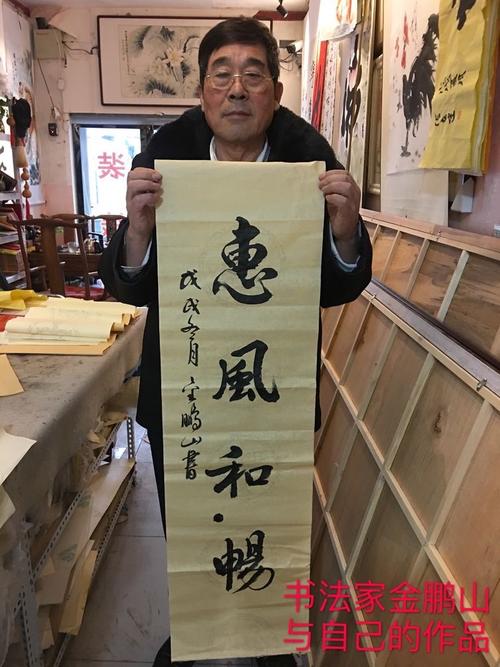 惠風和暢
戊戌冬月 金鵬山書
装
书法家金鹏山
与自己的作品